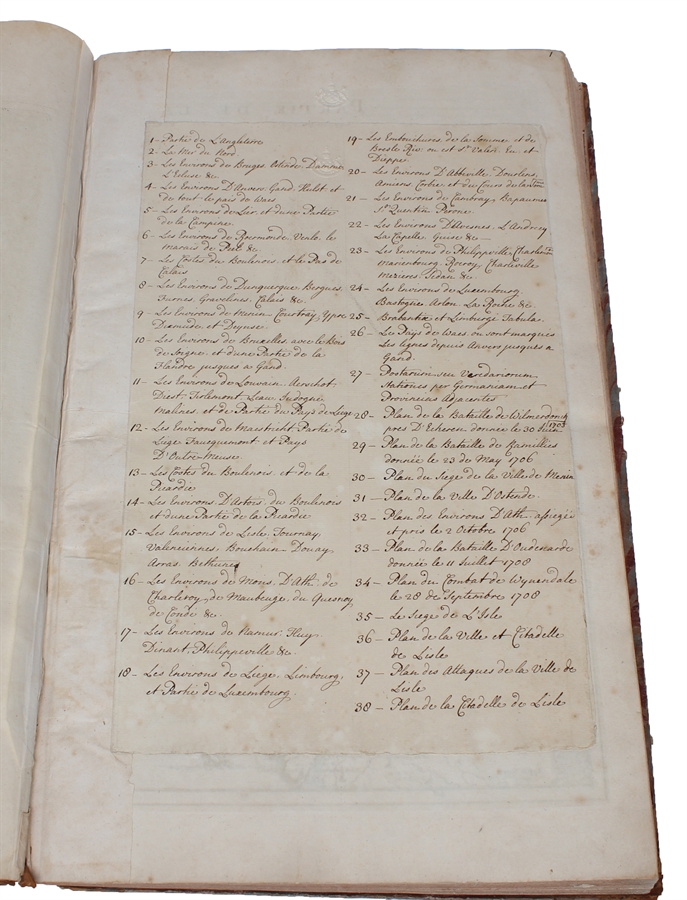 1
1 - Partie de L'angleterre
2 - La Mer du Nord
3 - Les Environs de Bruges Ostende, Damme,
L'Ecluse &c
4 - Les Environs D'Anvers Gand, Hulst et
de tout le pais de Waes
5 - Les Environs de Lier et d'une Partie
de la Campine
6 - Les Environs de Roermonde Venlo, le
marais de Peel &c
7 - Les Costes du Boulenois, et le Pas de
Calais
8 - Les Environs de Dunquerque Bergues
Furnes, Gravelines, Calais &c
9 - Les Environs de Menin Courtray, Ypre
Dixmude, et Deynse
10 - Les Environs de Bruxelles, avec le Bois
de Soigne, et d'une Partie de la
Flandre jusques a Gand
11 - Les Environs de Louvain, Aerschot
Diest, Tirlemont, Leau, Judogne
Malines, et de Partie du Pays de Liege
12 - Les Environs de Maestricht Partie de
Liege Fauquemont, et Pays
D'Outre-Meuse
13 - Les Costes du Boulenois, et de la
Picardie
14 - Les Environs D'Artois, du Boulenois
et d'une Partie de la Picardie
15 - Les Environs de Lisle, Tournay,
Valenciennes, Bouchain, Douay,
Arras, Bethune
16 - Les Environs de Mons, D'Ath, de
Charleroy, de Maubeuge, du Quesnoy
de Condé &c
17 - Les Environs de Namur, Huy,
Dinant, Philippeville &c.
18 - Les Environs de Liege, Limbourg,
et Partie de Luxembourg.
19 - Les Embouchures de la Somme et de
Bresle Riv. ou est St. Valeri Eu et
Dieppe
20 - Les Environs D'Abbeville, Dourlens,
Amiens Corbie et du Cours de la Som
21 - Les Environs de Cambray, Bapaume
St. Quentin Perone
22 - Les Environs D'Avesnes, L'Andrecy
La Capelle Guise &c
23 - Les Environs de Philippville, Charlem
marienbourg, Rocroy, Charleville
mezieres Sedan &c
24 - Les Environs de Luxembourg
Bastogne Arlon La Roche &c
25 - Brabantiæ et Limburgi Tabula.
26 - Le Pays de Waes ou sont marqués
Les lignes depuis Anvers jusques a
Gand
27 - Postarum seu Veredariorum
Stationes per Germaniam et
Provincias Adjacentes
28 - Plan de la Bataille de Wilmerdonck
pres D'Eckeren donnée le 30 Juin 1703
29 - Plan de la Bataille de Ramillies
donnée le 23 de May 1706
30 - Plan du Siege de la Ville de Menin
31 - Plan de la Ville D'Ostende
32 - Plan des Environs D'Ath, assiegé
et pris le 2 Octobre 1706
33 - Plan de la Bataille D'Oudenarde
donnée le 11 Juillet 1708
34 - Plan du Combat de Wynendale
le 28 de Septembre 1708
35 - Le Siege de L'Isle
36 - Plan de la Ville et Citadelle
de Lisle
37 - Plan des Attaques de la Ville de
Lisle
38 - Plan de la Citadelle de Lisle